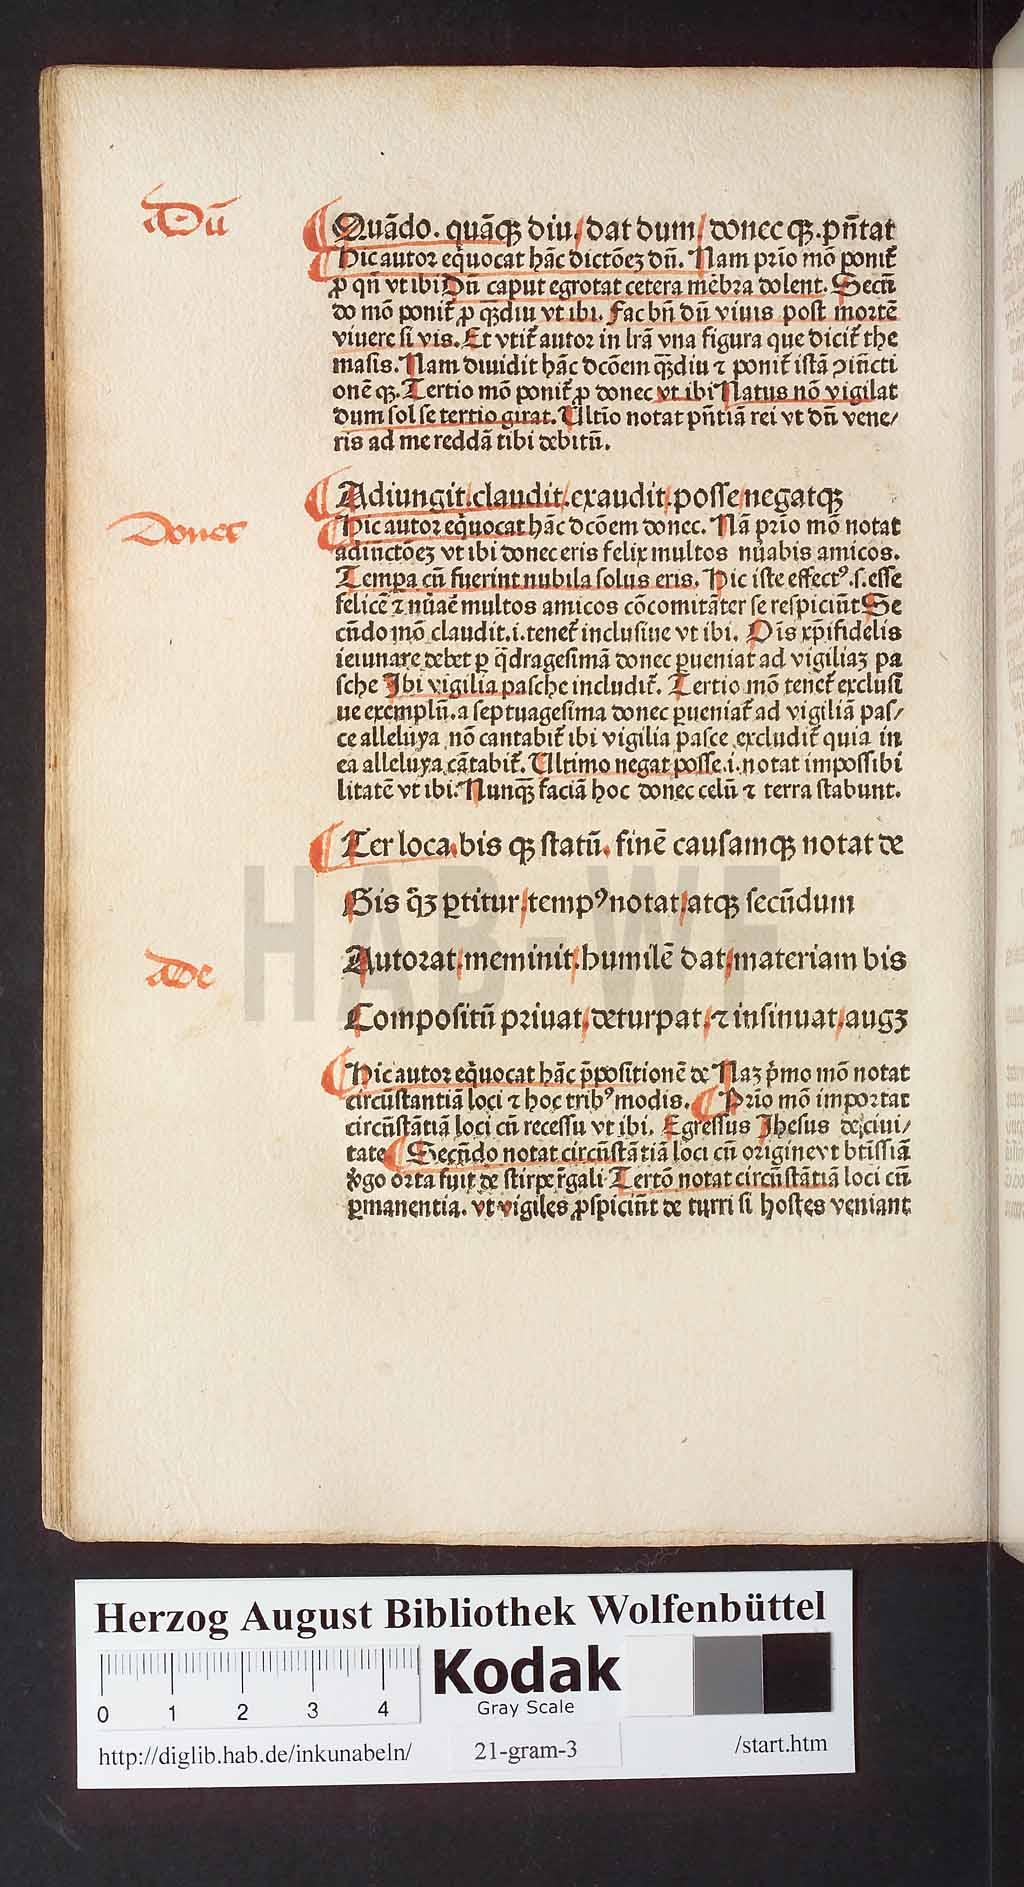 Dū
Quādo. quāqꝫ diu/ dat dum/ donec qꝫ. pn̄tat
Hic autor equocat hāc dictōeꝫ dn̄. Nam prīo mō ponit᷑
ꝓ qn̄ vt ibi Dn̄ caput egrotat cetera mēbra dolent. Secū
do mō ponit᷑ ꝓ qꝫdiu vt ibi. Fac bn̄ dū viuis post mortē
viuere si vis. Et vtit᷑ autor in lr̄a vna figura que dicit᷑ the
masis. Nam diuidit hāc dcōem qꝫdiu ⁊ ponit᷑ istā ꝯiūcti
onē qꝫ. Tertio mō ponit᷑ ꝓ donec vt ibi Natus nō vigilat
dum sol se tertio girat. Ultīo notat pn̄tiā rei vt dn̄ vene/
ris ad me reddā tibi debitū.
Donec
Adiungit/ claudit/ exaudit/ posse/ negatqꝫ
Hic autor equocat hāc dcōem donec. Nā prīo mō notat
adinctōeꝫ vt ibi donec eris felix multos nūabis amicos.
Tempa cū fuerint nubila solus eris. Hic iste effectꝰ .s. esse
felicē ⁊ nūaē multos amicos cōcomitāter se respiciūt Se
cūdo mō claudit .i. tenet᷑ inclusiue vt ibi. Oīs xp̄ifidelis
ieiunare debet ꝑ q̄dragesimā donec ꝑueniat ad vigiliaꝫ pa
sche Ibi vigilia pasche includit᷑. Tertio mō tenet᷑ exclusi
ue exemplū. a septuagesima donec ꝑueniat᷑ ad vigiliā pas/
ce alleluya nō cantabit᷑ ibi vigilia pasce excludit᷑ quia in
ea alleluya cātabit᷑. Ultimo negat posse .i. notat impossibi
litatē vt ibi. Nunqꝫ faciā hoc donec celū ⁊ terra stabunt.
Ter loca bis qꝫ statū. finē causamqꝫ notat de
Bis q̄ꝫ ꝑtitur/ tempꝰ notat/ atqꝫ secūdum
de
Autorat/ meminit/ humilē dat/ materiam bis
Compositū priuat/ deturpat/ ⁊ insinuat/ augꝫ
Hic autor equocat hāc p̄positionē de Naꝫ pͥmo mō notat
circūstantiā loci ⁊ hoc tribꝰ modis. Prīo mō importat
circūstātiā loci cū recessu vt ibi. Egressus Jhesus de ciui/
tate Secūdo notat circūstātiā loci cū origine vt btīssiā
v̄go orta fuit de stirpe r̄gali Tertō notat circūstātiā loci cū
ꝑmanentia. vt vigiles ꝓspiciūt de turri si hostes veniant
HAB-WF
Herzog August Bibliothek Wolfenbüttel
0 1 2 3 4
Kodak
Gray Scale
http://diglib.hab.de/inkunabeln/ 21-gram-3 /start.htm